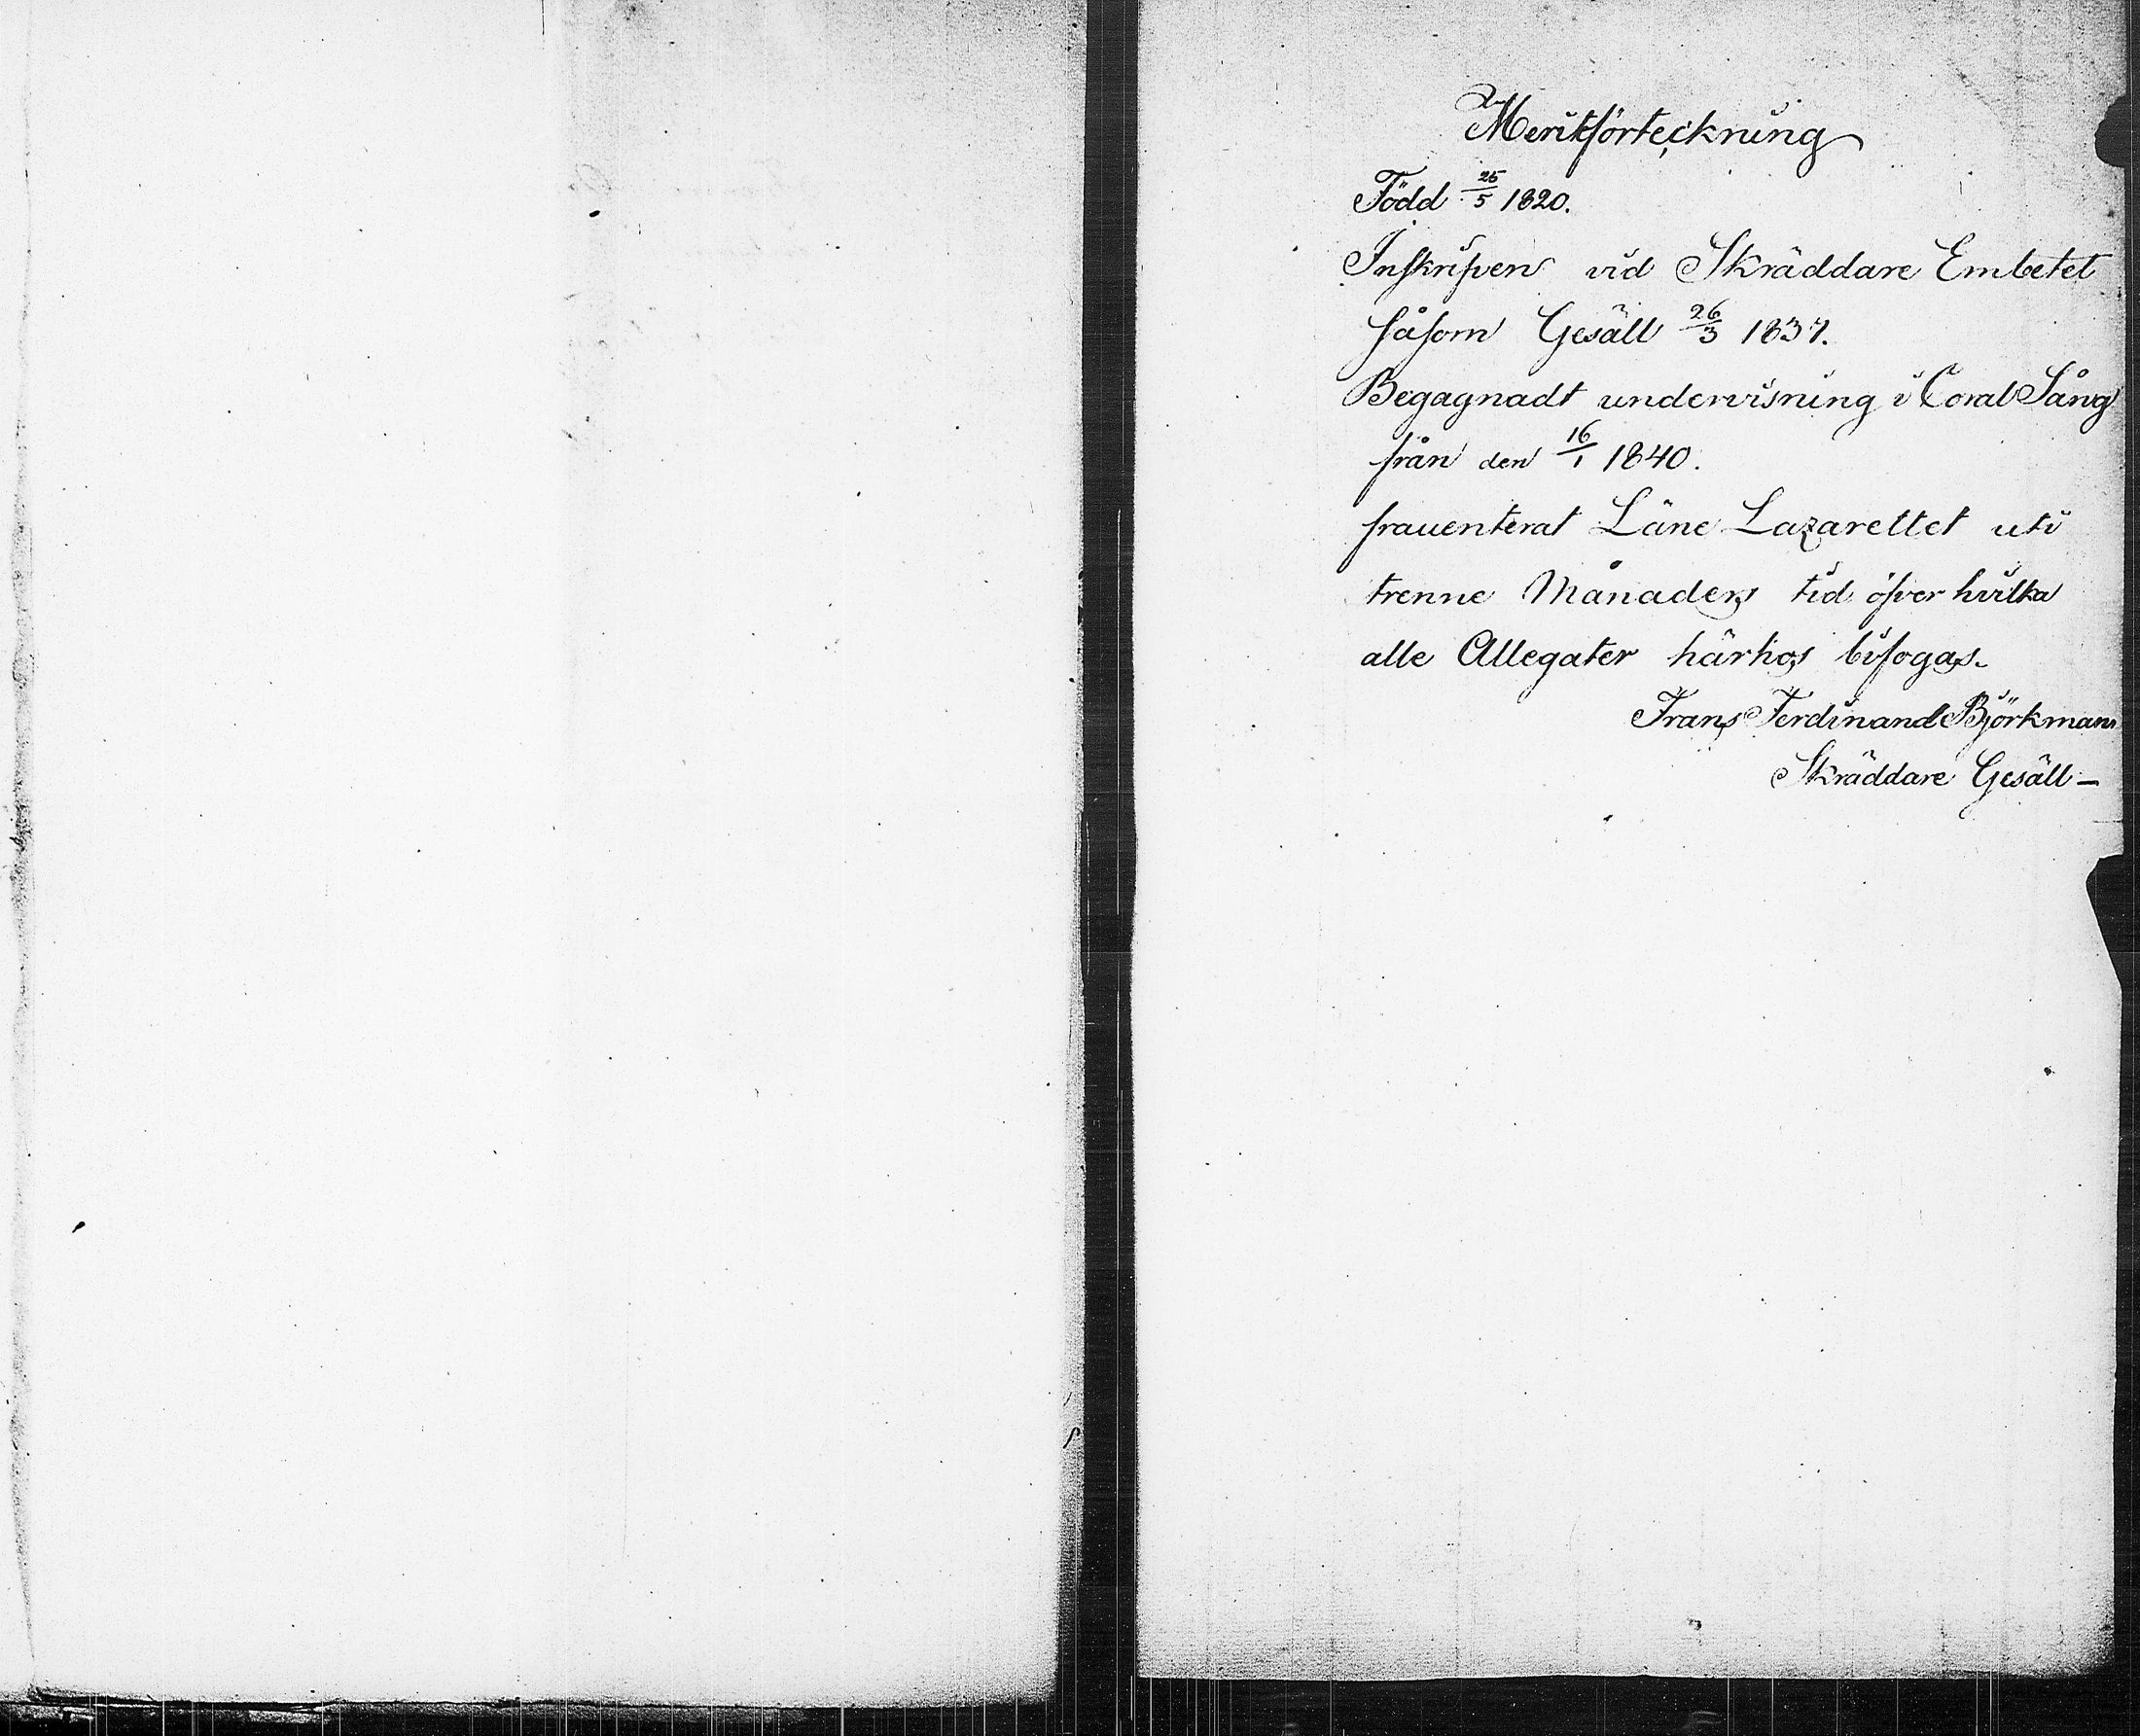 Meritförteckning
Född 25/5 1820.
Inskrifven vid Skräddare Embetet
såsom Gesäll 26/3 1837.
Begagnadt undervisning i Coral Sång
från den 16/1 1840.
frauenterat Läne Lazarettet uti
trenne Månaders tid öfver hvilka
alle Allegater härhos bifogas.
Frans Ferdinand Björkman
Skräddare Gesäll —